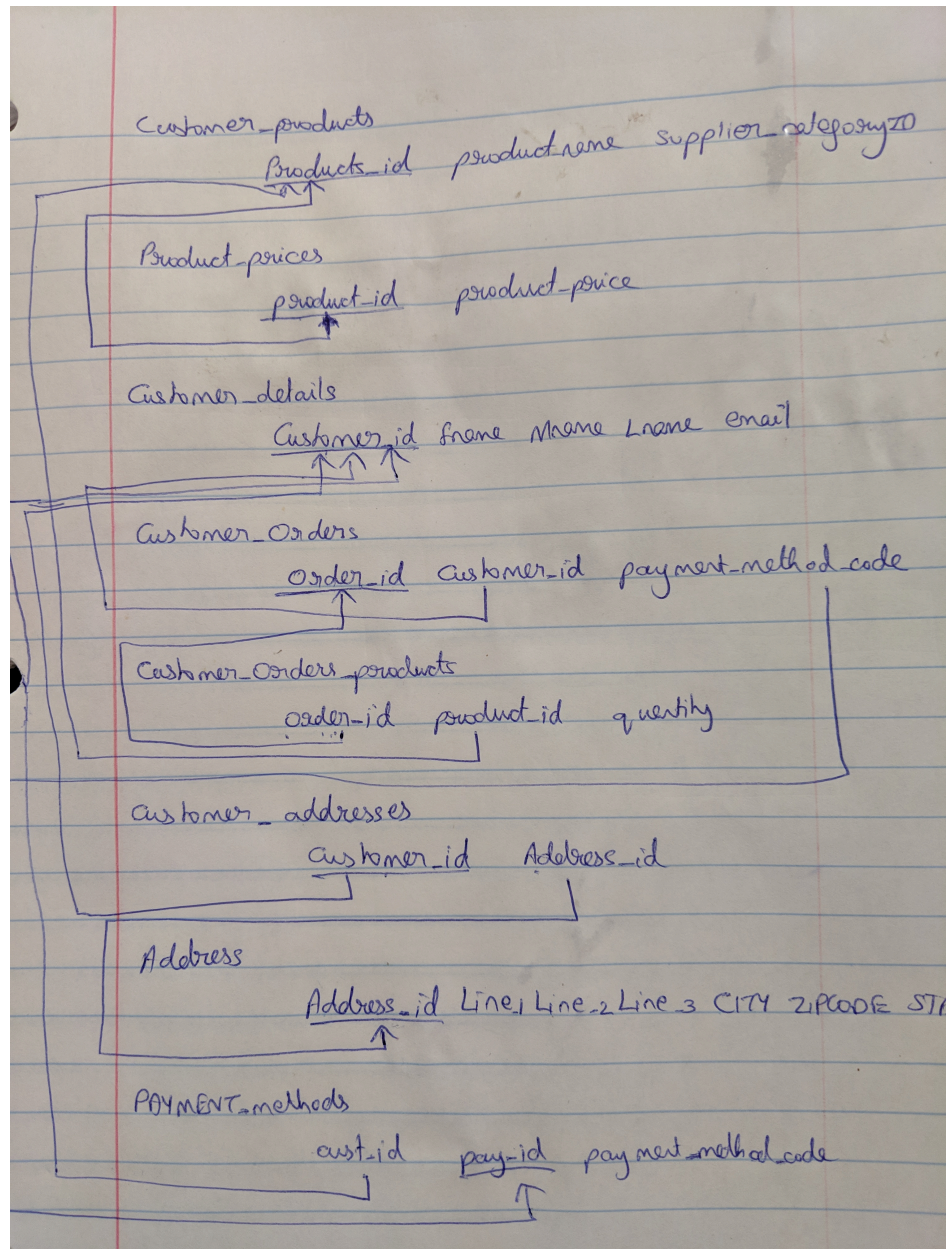 Customer_products
Products_id productname supplier_categoryID
Product_prices
product_id product_price
Customer_details
Customer_id fname Mname Lname email
Customer_Orders
Order_id Customer_id payment_method_code
Customer_Orders_products
order_id product_id quantity
Customer_addresses
Customer_id Address_id
Address
Address_id Line_1 Line_2 Line_3 CITY ZIPCODE STA
PAYMENT_methods
cust_id pay_id payment_method_code